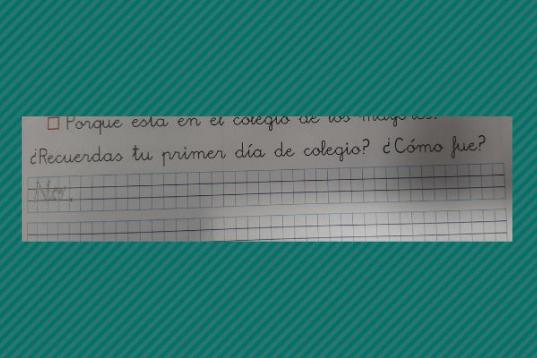 Porque esta en el colegio de los mayores.
¿Recuerdas tu primer día de colegio? ¿Cómo fue?
No.